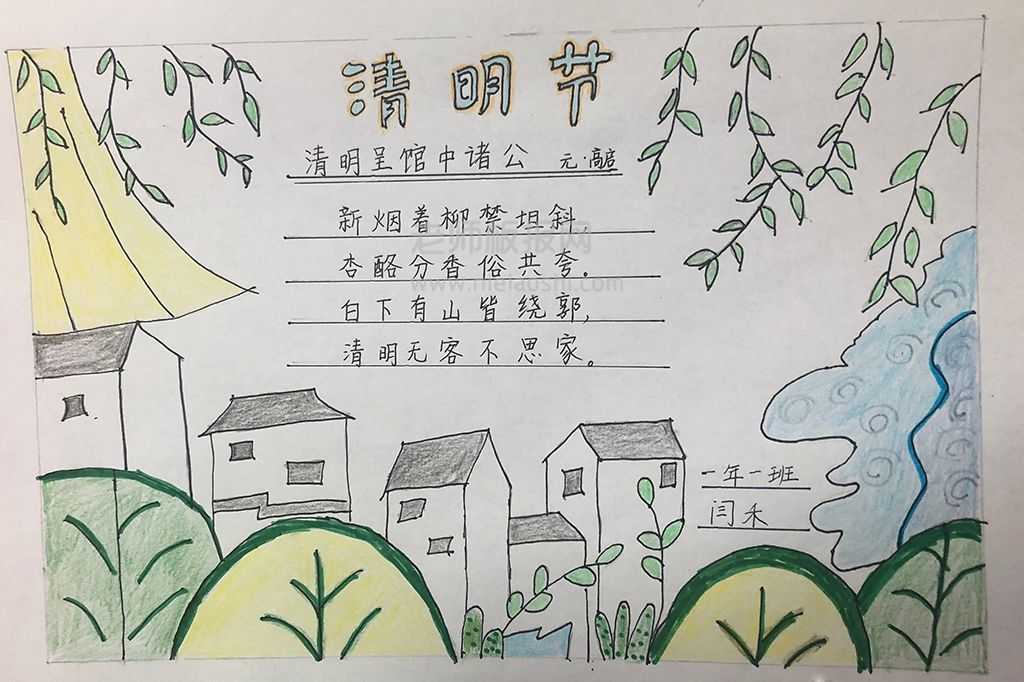 清明节
清明呈馆中诸公 元·高启
新烟着柳禁垣斜,
杏酪分香俗共夸。
白下有山皆绕郭,
清明无客不思家。
老师板报网
www.mielaoshi.com
一年一班
闫禾